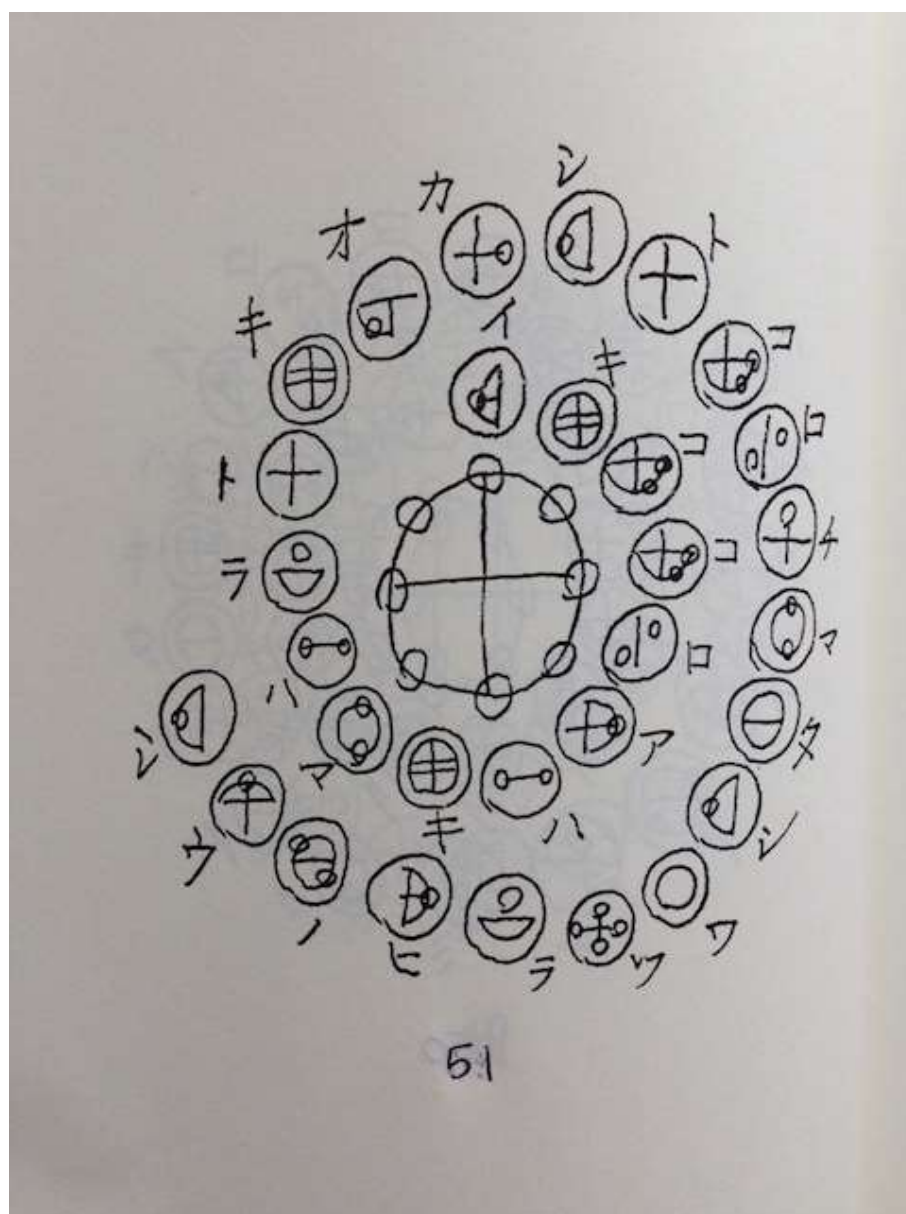 イキココロアハキマハラトキオカシトコロチマタシワツラヒノウシ
51